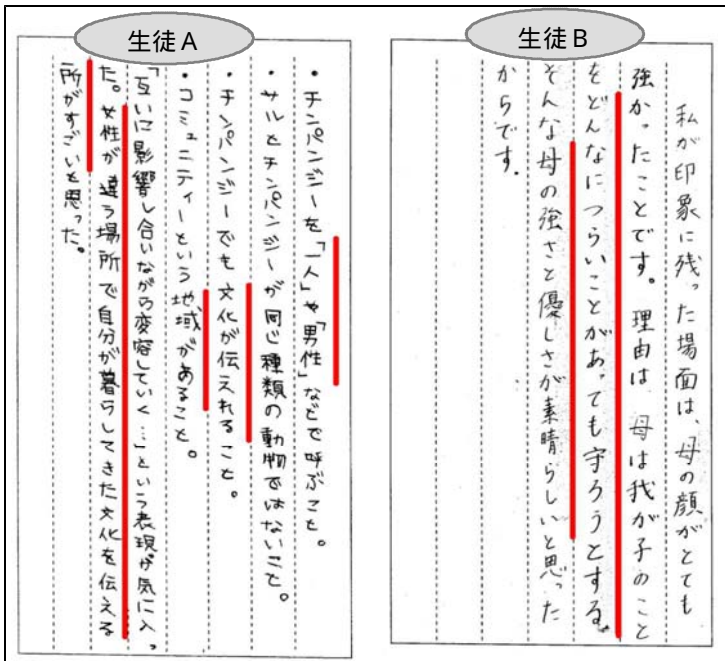 生徒A
・チンパンジーを「一人」や「男性」などで呼ぶこと。
・サルとチンパンジーが同じ種類の動物ではないこと。
・チンパンジーでも文化が伝えれること。
・コミュニティーという地域があること。
「互いに影響し合いながら変容していく…」という表現が気に入っ
た。女性が違う場所で自分が暮らしてきた文化を伝える
所がすごいと思った。
生徒B
私が印象に残った場面は、母の顔がとても
強かったことです。理由は、母は我が子のこと
をどんなにつらいことがあっても守ろうとする。
そんな母の強さと優しさが素晴らしいと思った
からです。